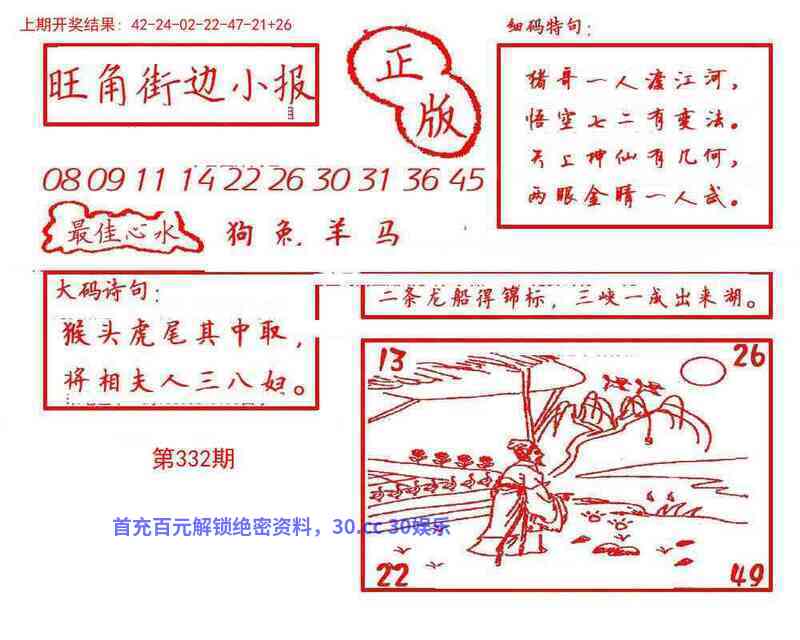 上期开奖结果：42-24-02-22-47-21+26
旺角街边小报
正版
细码特句：
猪哥一人渡江河，
悟空七二有变法。
天上神仙有几何，
两眼金睛一人武。
08 09 11 14 22 26 30 31 36 45
最佳心水
狗兔.羊马
大码诗句：
猴头虎尾其中取，
将相夫人三八妇。
二条龙船得锦标，三峡一成出来湖。
第332期
13
26
22
49
首充百元解锁绝密资料，30.cc 30娱乐